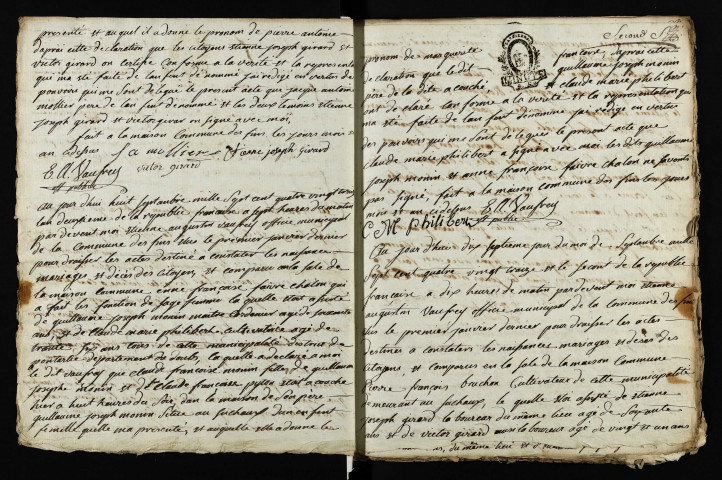 presenté et auquel il a donné le prenom de pierre antoine
daprai cette declaration que les citoyens etienne joseph girard et
victor girard on certifie conforme a la verité et la represente
qui ma ete faite de lenfant denommé jai redigé en vertu des
pouvoirs qui me sont delegué le present acte que jacque antoine
mollier pere de lenfant denommé et les deux temoins etienne
joseph girard et victor girar on signé avec moi,
fait a la maison Commune des fins les jours mois et
an dessus J a mollier etienne joseph girard
E A. Vaufrey victor girard
off public
au jour dhui huit septambre mille sept cent quatre vingt treize
lan deuxieme de la republique francaise a sept heures de matin
par devent moi etienne augustin vaufrey officier municipal
de la Commune des fins elue le premier janvier dernier
pour draisser les actes destiné a constater les naissance
mariage et décés des citoyens et comparu en la sale de
la maison commune anne françoise faivre chalon qui
a fait les fonction de sage femme la quelle etoit assisté
de guillaume joseph monin maitre cordonier agé de soixante
ans et de Claude marie philibert cultivateur agé de
trante ans tous de cette municipalité district de
pontarlier departement du doubs, la quelle a declaré a moi
le dit vaufrey que claude francoise monin fille de guillaum
joseph monin et de claude francoise est acouché
hier a huit heures du soir, dan la maison de son pere
guillaume joseph monin située au suchaux dun enfant
femelle quelle ma presenté, et auquelle elle a donné le
Second
prenom de marguerite francoise daprai cette
declaration que le dit guillaume joseph monin
pere de la dite acouché et claude marie philibert
ont declaré conforme a la verité et la representation qui
ma eté faite de lenfant denommé jai redigé en vertus
des pouvoirs qui me sont delegué le present acte que
claude marie philibert a signé avec moi, et guillaume
joseph monin et anne françoise faivre chalon ne savante
pas signé, fait a la maison commune des fins les jours
mois et an cy dessus E A. Vaufrey
C M Philibert off public
Au jour dhui dix septieme jour du moi de septambre mille
sept cent quatre vingt treize et le second de la republique
francaise a dix heures de matin par devent moi etienne
augustin vaufrey officie municipal de la commune des fins
elue le premier janvier dernier pour draisser les actes
destinés a constater les naissances mariages et decés des
citoyens et comparus en la sale de la maison Commune
pierre françois bruchon cultivateur de cette municipalité
demeurant au suchaux, le quelle etoit assisté de etienne
joseph girard laboureur du même lieu agé de soixante
ans et de victor girard aussi laboureur agé de vingt et un ans
du même lieu et